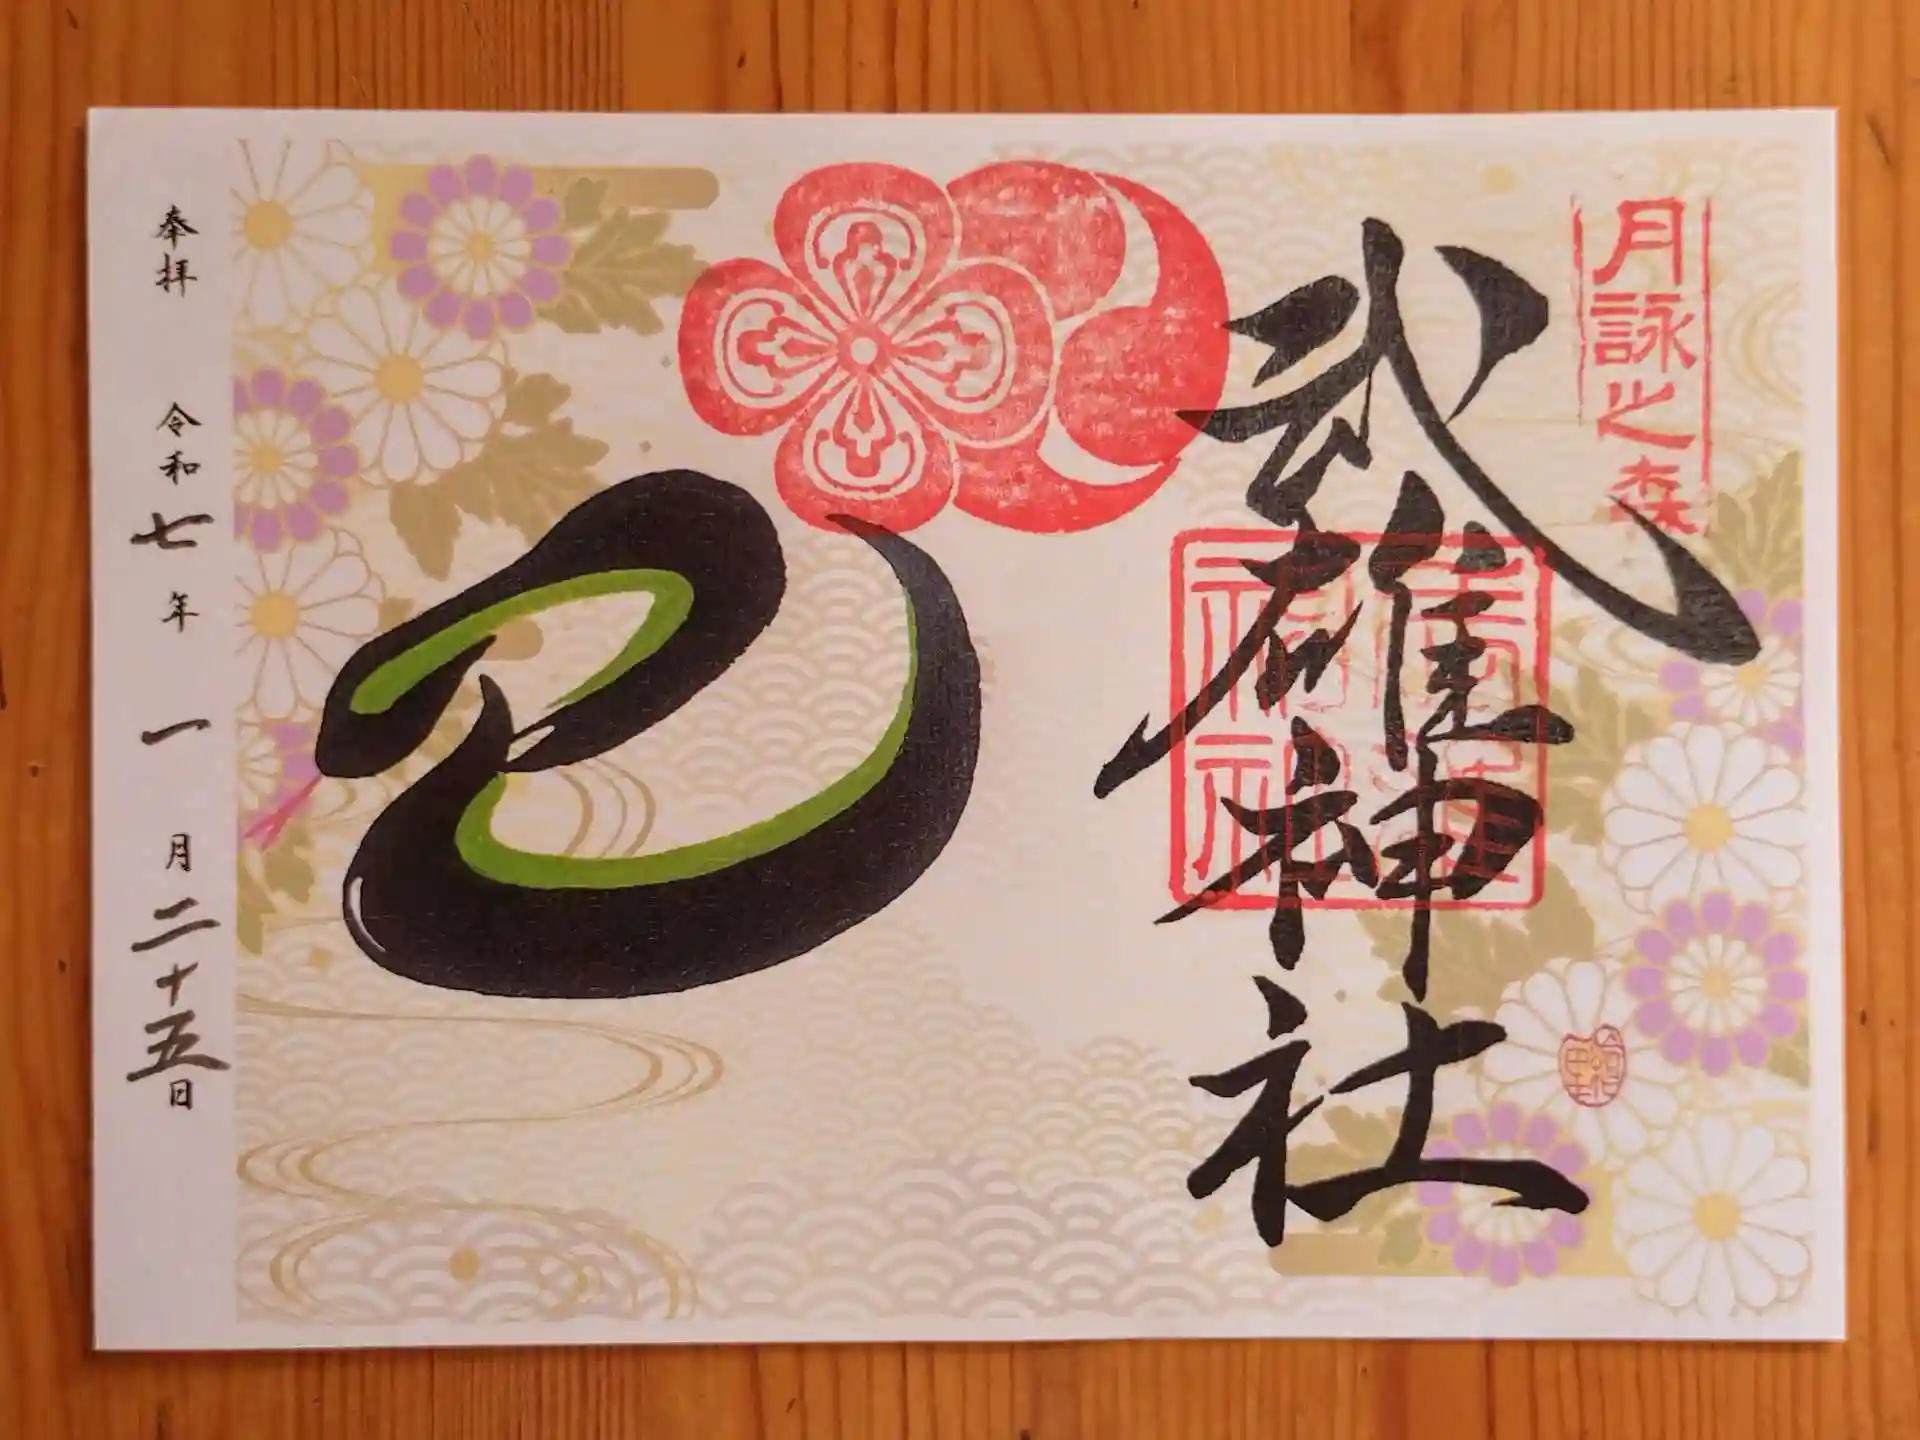 月詠之森
武雄神社
巳
奉拝 令和七年一月二十五日